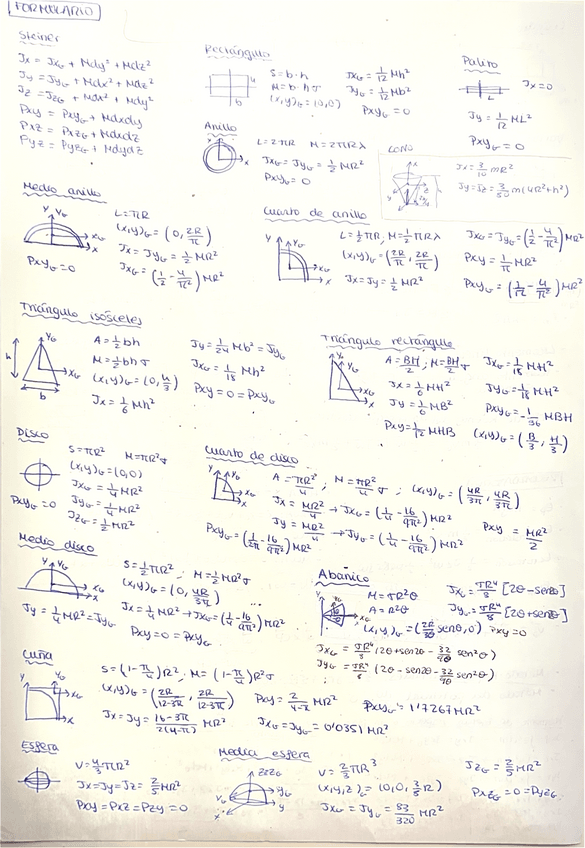 FORMULARIO
Steiner
Jx = JxG + Mdy² + Mdz²
Jy = JyG + Mdx² + Mdz²
Jz = JzG + Mdx² + Mdy²
Pxy = PxyG + Mdxdy
Pxz = PxzG + Mdxdz
Pyz = PyzG + Mdydz
Rectángulo
S = b·h
M = b·h σ
(x,y)G = (0,0)
JxG = 1/12 Mh²
JyG = 1/12 Mb²
PxyG = 0
Palito
Jx = 0
Jy = 1/12 ML²
PxyG = 0
Anillo
L = 2πR M = 2πRλ
JxG = JyG = 1/2 MR²
PxyG = 0
Cono
Jx = 3/10 mR²
Jy = Jz = 3/50 m(4R²+h²)
Medio anillo
L = πR
(x,y)G = (0, 2R/π)
Jx = JyG = 1/2 MR²
JxG = (1/2 - 4/π²) MR²
PxyG = 0
Cuarto de anillo
L = 1/2 πR, M = 1/2 πRλ
(x,y)G = (2R/π, 2R/π)
Jx = Jy = 1/2 MR²
JxG = JyG = (1/2 - 4/π²) MR²
Pxy = 1/π MR²
PxyG = (1/π - 4/π²) MR²
Triángulo isósceles
A = 1/2 bh
M = 1/2 bh σ
(x,y)G = (0, h/3)
Jx = 1/6 Mh²
Jy = 1/24 Mb² = JyG
JxG = 1/18 Mh²
Pxy = 0 = PxyG
Triángulo rectángulo
A = BH/2 ; M = BH/2 σ
Jx = 1/6 MH²
Jy = 1/6 MB²
Pxy = 1/12 MHB
JxG = 1/18 MH²
JyG = 1/18 MH²
PxyG = -1/36 MBH
(x,y)G = (B/3, H/3)
Disco
S = πR² M = πR²σ
(x,y)G = (0,0)
JxG = 1/4 MR²
JyG = 1/4 MR²
JzG = 1/2 MR²
PxyG = 0
Cuarto de disco
A = πR²/4 ; M = πR²/4 σ ; (x,y)G = (4R/3π, 4R/3π)
Jx = MR²/4 → JxG = (1/4 - 16/9π²) MR²
Jy = MR²/4 → JyG = (1/4 - 16/9π²) MR²
PxyG = (1/2π - 16/9π²) MR²
Pxy = MR²/2
Medio disco
S = 1/2 πR² ; M = 1/2 πR²σ
(x,y)G = (0, 4R/3π)
Jy = 1/4 MR² = JyG
Jx = 1/4 MR² → JxG = (1/4 - 16/9π²) MR²
Pxy = 0 = PxyG
Abanico
M = σR²θ
A = R²θ
(x,y)G = (2R/3θ senθ, 0) Pxy = 0
JxG = σR⁴/8 [2θ - sen2θ]
JyG = σR⁴/8 [2θ + sen2θ]
JxG = σR⁴/8 (2θ + sen2θ - 32/9θ sen²θ)
JyG = σR⁴/8 (2θ - sen2θ - 32/9θ sen²θ)
Cuña
S = (1 - π/4) R² ; M = (1 - π/4) R²σ
(x,y)G = (2R/12-3π, 2R/12-3π)
Pxy = 2/4-π MR²
PxyG = 1'7267 MR²
Jx = Jy = 16-3π/2(4-π) MR²
JxG = JyG = 0'0351 MR²
Esfera
V = 4/3 πR²
Jx = Jy = Jz = 2/5 MR²
Pxy = Pxz = Pzy = 0
Media esfera
V = 2/3 πR³
(x,y,z)G = (0,0, 3/8 R)
JxG = JyG = 83/320 MR²
JzG = 2/5 MR²
PxzG = 0 = PyzG